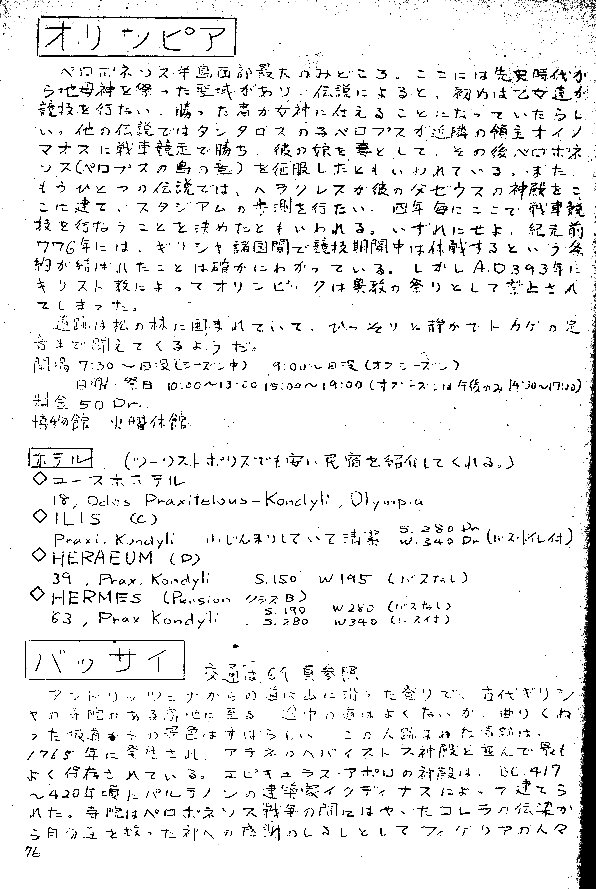 オリンピア
ペロポネソス半島西部最大のみどころ。ここには先史時代か
ら地母神を祭った聖域があり、伝説によると、初めは乙女達が
競技を行ない、勝った者が女神に仕えることになっていたらし
い。他の伝説ではタンタロスの子ペロプスが近隣の領主オイノ
マオスに戦車競走で勝ち、彼の娘を妻として、その後ペロポネ
ソス(ペロプスの島の意)を征服したともいわれている。また、
もうひとつの伝説では、ヘラクレスが彼の父ゼウスの神殿をこ
こに建て、スタジアムの歩測を行ない、四年毎にここで戦車競
技を行なうことを決めたともいわれる。いずれにせよ、紀元前
776年には、ギリシャ諸国間で競技期間中は休戦するという条
約が結ばれたことは確かにわかっている。しかしA.D393年に
キリスト教によってオリンピックは異教の祭りとして禁止され
てしまった。
遺跡は松の林に囲まれていて、ひっそりと静かでトカゲの足
音まで聞えてくるようだ。
開場 7:30〜日没(シーズン中) 9:00〜日没(オフシーズン)
日曜・祭日 10:00〜13:00 15:00〜19:00 (オフシーズンは午後のみ 14:30〜17:00)
料金 50 Dr.
博物館 火曜休館
ホテル (ツーリストポリスでも安い民宿を紹介してくれる。)
◇ユースホステル
18, Odos Praxitelous-Kondyli, Olympia
◇ILIS (C)
Praxi. Kondyli こじんまりしていて清潔 S. 280 Dr W. 340 Dr (バス・トイレ付)
◇HERAEUM (D)
39, Prax. Kondyli S. 150 W 195 (バスなし)
◇HERMES (Pension クラスB)
63, Prax Kondyli S. 190 W 280 (バスなし)
S. 280 W 340 (バス付)
バッサイ 交通は69頁参照
アンドリッツェナからの道は山に沿った登りで、古代ギリシ
ャの寺院がある高地に至る。途中の道はよくないが、曲りくね
った坂道からの景色はすばらしい。この人里はなれた遺跡は、
1765年に発見され、アテネのヘパイストス神殿と並んで最も
よく保存されている。エピキュラス・アポロの神殿は、BC.417
〜420年頃にパルテノンの建築家イクティナスによって建てら
れた。寺院はペロポネソス戦争の間にはやったコレラの伝染か
ら自分達を救った神への感謝のしるしとしてフィゲリアの人々
76